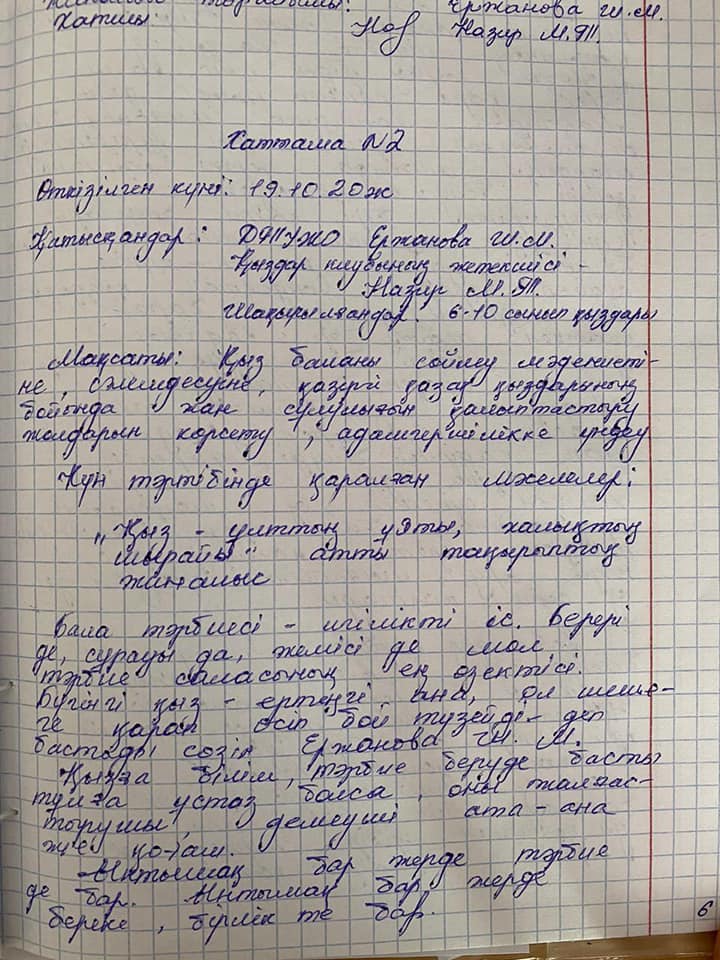 Ержанова Ш.М.
Хатшы: Наз Назир М.Т.
Хаттама №2
Өткізілген күні: 19.10.20ж
Қатысқандар: Ержанова Ш.М.
Қыздар клубының жетекшісі -
Назир М.Т.
Шақырылғандар: 6-10 сынып қыздары
Мақсаты: Қыз баланы сөйлеу мәдениеті-
не, сәлемдесуіне, қазіргі қазақ қыздарының
бойында жан сұлулығын қалыптастыру
жолдарын көрсету, адамгершілікке үндеу
Күн тәртібінде қаралған мәселелер:
"Қыз - ұлттың ұяты, халықтың
шырайы" атты тақырыптық
жиналыс
Бала тәрбиесі - игілікті іс. Берері
де, сұрауы да, жемісі де мол
тәрбие саласының ең өзектісі.
Бүгінгі қыз - ертеңгі ана, ол шеше-
ге қарап өсіп бой түзейді - деп
бастады сөзін Ержанова Ш. М.
Қызға білім, тәрбие беруде басты
тұлға ұстаз болса, оны жалғас-
тырушы, демеуші ата-ана
қоғам.
-Ынтымақ бар жерде тәрбие
де бар. Ынтымақ бар жерде
береке, бірлік те бар.
6